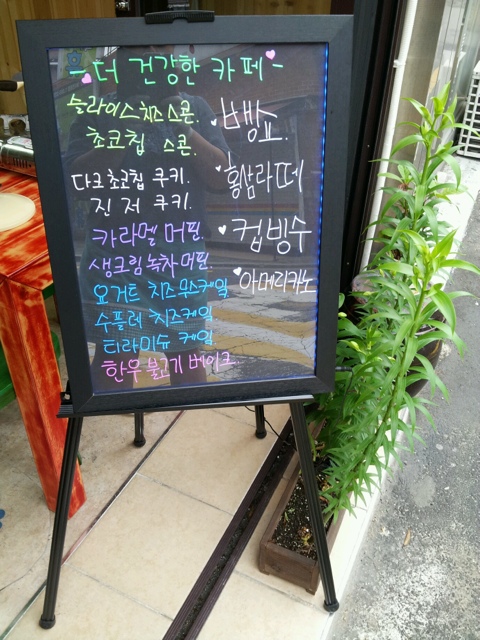 -더 건강한 카페-
슬라이스치즈 스콘.
초코칩 스콘.
다크 초코칩 쿠키.
진저 쿠키.
카라멜 머핀.
생크림 녹차 머핀.
요거트 치즈무스케잌
수플레 치즈케잌
티라미슈 케잌
한우 불고기 베이크
뱅쇼.
홍삼라떼
컵빙수
아메리카노